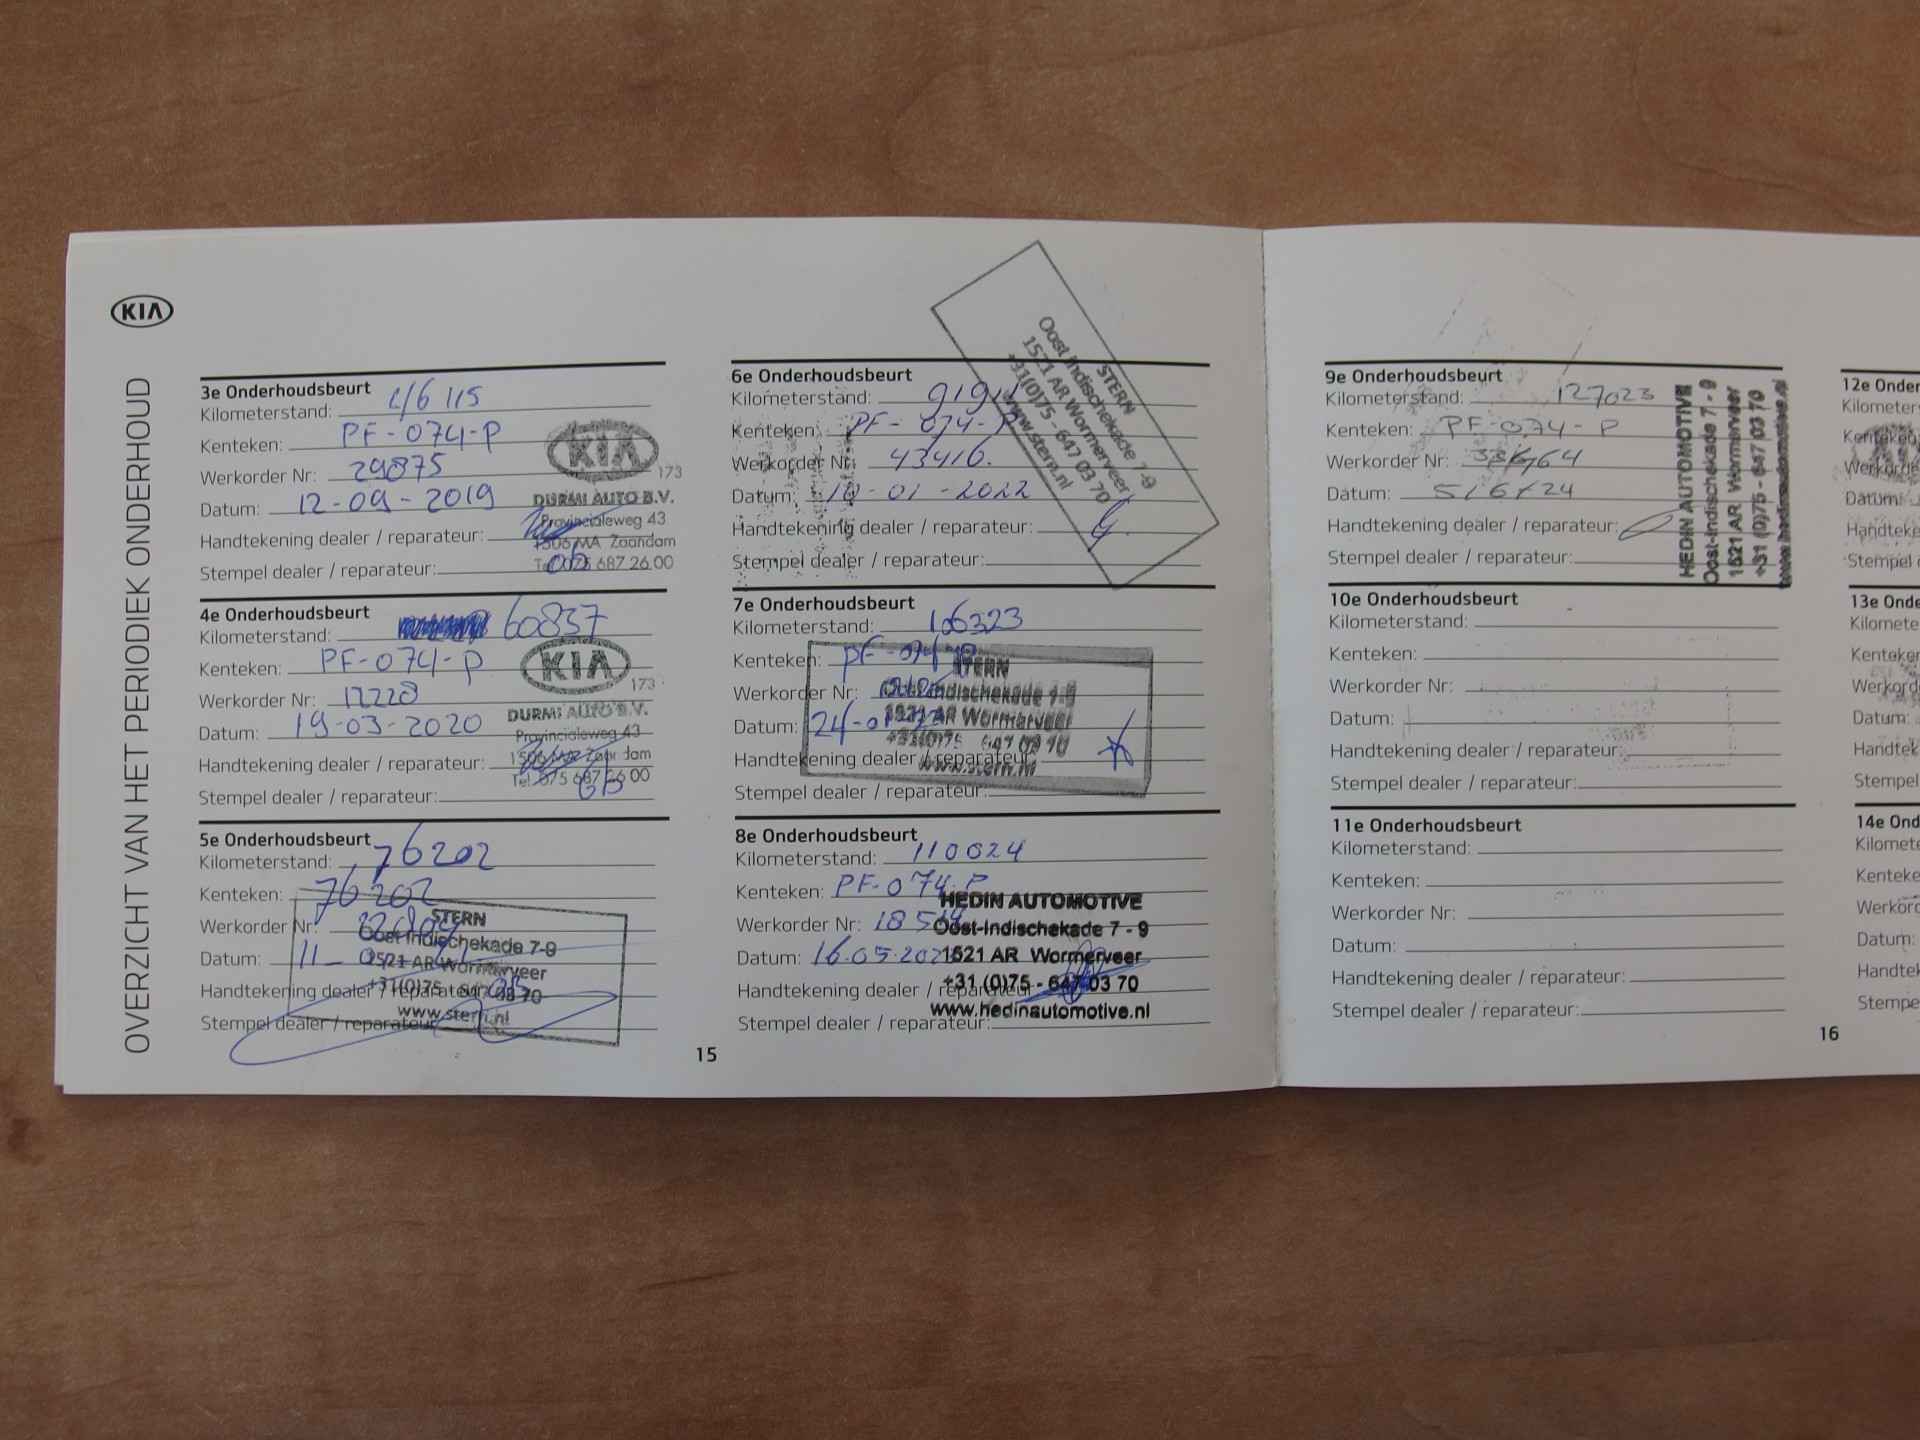 KIA
OVERZICHT VAN HET PERIODIEK ONDERHOUD
3e Onderhoudsbeurt
Kilometerstand: 46115
Kenteken: PF-074-P
Werkorder Nr: 29875
Datum: 12-09-2019
Handtekening dealer / reparateur:
Stempel dealer / reparateur:
KIA
173
DURMI AUTO B.V.
Provincialeweg 43
1506 MA Zaandam
Tel. 075 687 26 00
4e Onderhoudsbeurt
Kilometerstand: 60837
Kenteken: PF-074-P
Werkorder Nr: 12228
Datum: 19-03-2020
Handtekening dealer / reparateur:
Stempel dealer / reparateur:
KIA
173
DURMI AUTO B.V.
Provincialeweg 43
1506 MA Zaandam
Tel. 075 687 26 00
5e Onderhoudsbeurt
Kilometerstand: 76202
Kenteken: 76202
Werkorder Nr:
Datum: 11-
Handtekening dealer / reparateur:
Stempel dealer / reparateur:
STERN
Oost Indischekade 7-9
1521 AR Wormerveer
+31(0)75 - 647 03 70
www.stern.nl
6e Onderhoudsbeurt
Kilometerstand:
Kenteken: PF-074-P
Werkorder Nr: 43416.
Datum: 10-01-2022
Handtekening dealer / reparateur:
Stempel dealer / reparateur:
STERN
Oost Indischekade 7-9
1521 AR Wormerveer
+31(0)75 - 647 03 70
www.stern.nl
7e Onderhoudsbeurt
Kilometerstand: 106323
Kenteken: PF-074-P
Werkorder Nr:
Datum: 24-01-
Handtekening dealer / reparateur:
Stempel dealer / reparateur:
STERN
Oost Indischekade 7-9
1521 AR Wormerveer
+31(0)75 647 03 70
www.stern.nl
8e Onderhoudsbeurt
Kilometerstand: 110024
Kenteken: PF-074-P
Werkorder Nr:
Datum: 16-05-202
Handtekening dealer / reparateur:
Stempel dealer / reparateur:
HEDIN AUTOMOTIVE
Oost-Indischekade 7 - 9
1521 AR Wormerveer
+31 (0)75 - 647 03 70
www.hedinautomotive.nl
15
9e Onderhoudsbeurt
Kilometerstand: 127023
Kenteken: PF-074-P
Werkorder Nr:
Datum: 5/6/24
Handtekening dealer / reparateur:
Stempel dealer / reparateur:
HEDIN AUTOMOTIVE
Oost-Indischekade 7 - 9
1521 AR Wormerveer
+31 (0)75 - 647 03 70
www.hedinautomotive.nl
10e Onderhoudsbeurt
Kilometerstand:
Kenteken:
Werkorder Nr:
Datum:
Handtekening dealer / reparateur:
Stempel dealer / reparateur:
11e Onderhoudsbeurt
Kilometerstand:
Kenteken:
Werkorder Nr:
Datum:
Handtekening dealer / reparateur:
Stempel dealer / reparateur:
12e Onder
Kilometer
Kenteken
Werkorde
Datum:
Handteke
Stempel
13e Onde
Kilomete
Kenteke
Werkord
Datum:
Handtek
Stempel
14e Ond
Kilomet
Kenteke
Werkord
Datum:
Handtek
Stempe
16